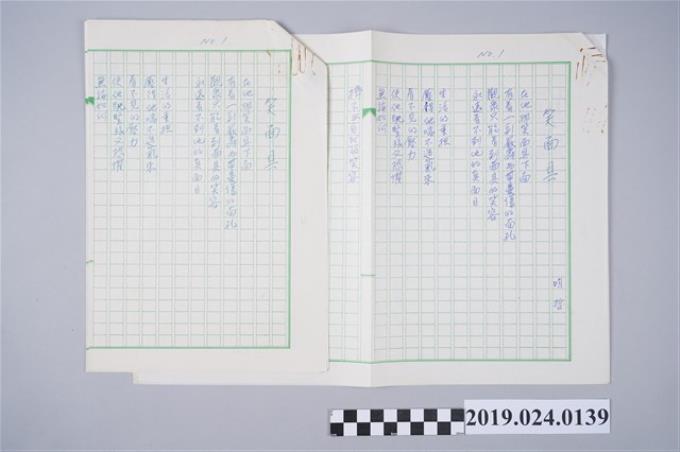 No. 1
笑面具
在他那笑面具下面
有着一副嚴肅而帶憂傷的面孔
觀眾只能看到面具的笑容
永遠看不到他的真面目
生活的重擔
壓得他喘不過氣來
看不見的壓力
使他既緊張又恐懼
無論如何
No. 1
笑面具
明哲
在他那笑面具下面
有着一副嚴肅而帶憂傷的面孔
觀眾只能看到面具的笑容
永遠看不到他的真面目
生活的重擔
壓得他喘不過氣來
看不見的壓力
使他既緊張又恐懼
無論如何
的笑容
2019.024.0139